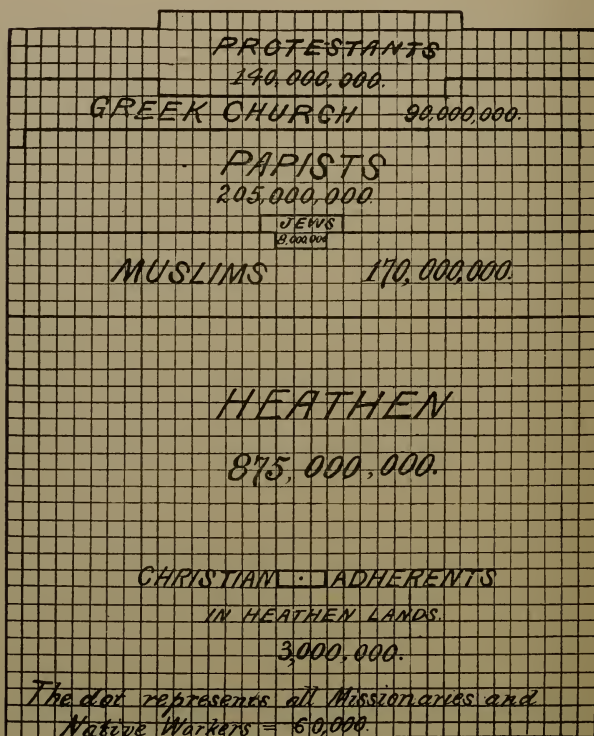 PROTESTANTS
140,000,000.
GREEK CHURCH 90,000,000.
PAPISTS
205,000,000.
JEWS
8,000,000
MUSLIMS 170,000,000.
HEATHEN
875,000,000.
CHRISTIAN ADHERENTS
IN HEATHEN LANDS.
3,000,000.
The dot represents all Missionaries and
Native Workers = 60,000.